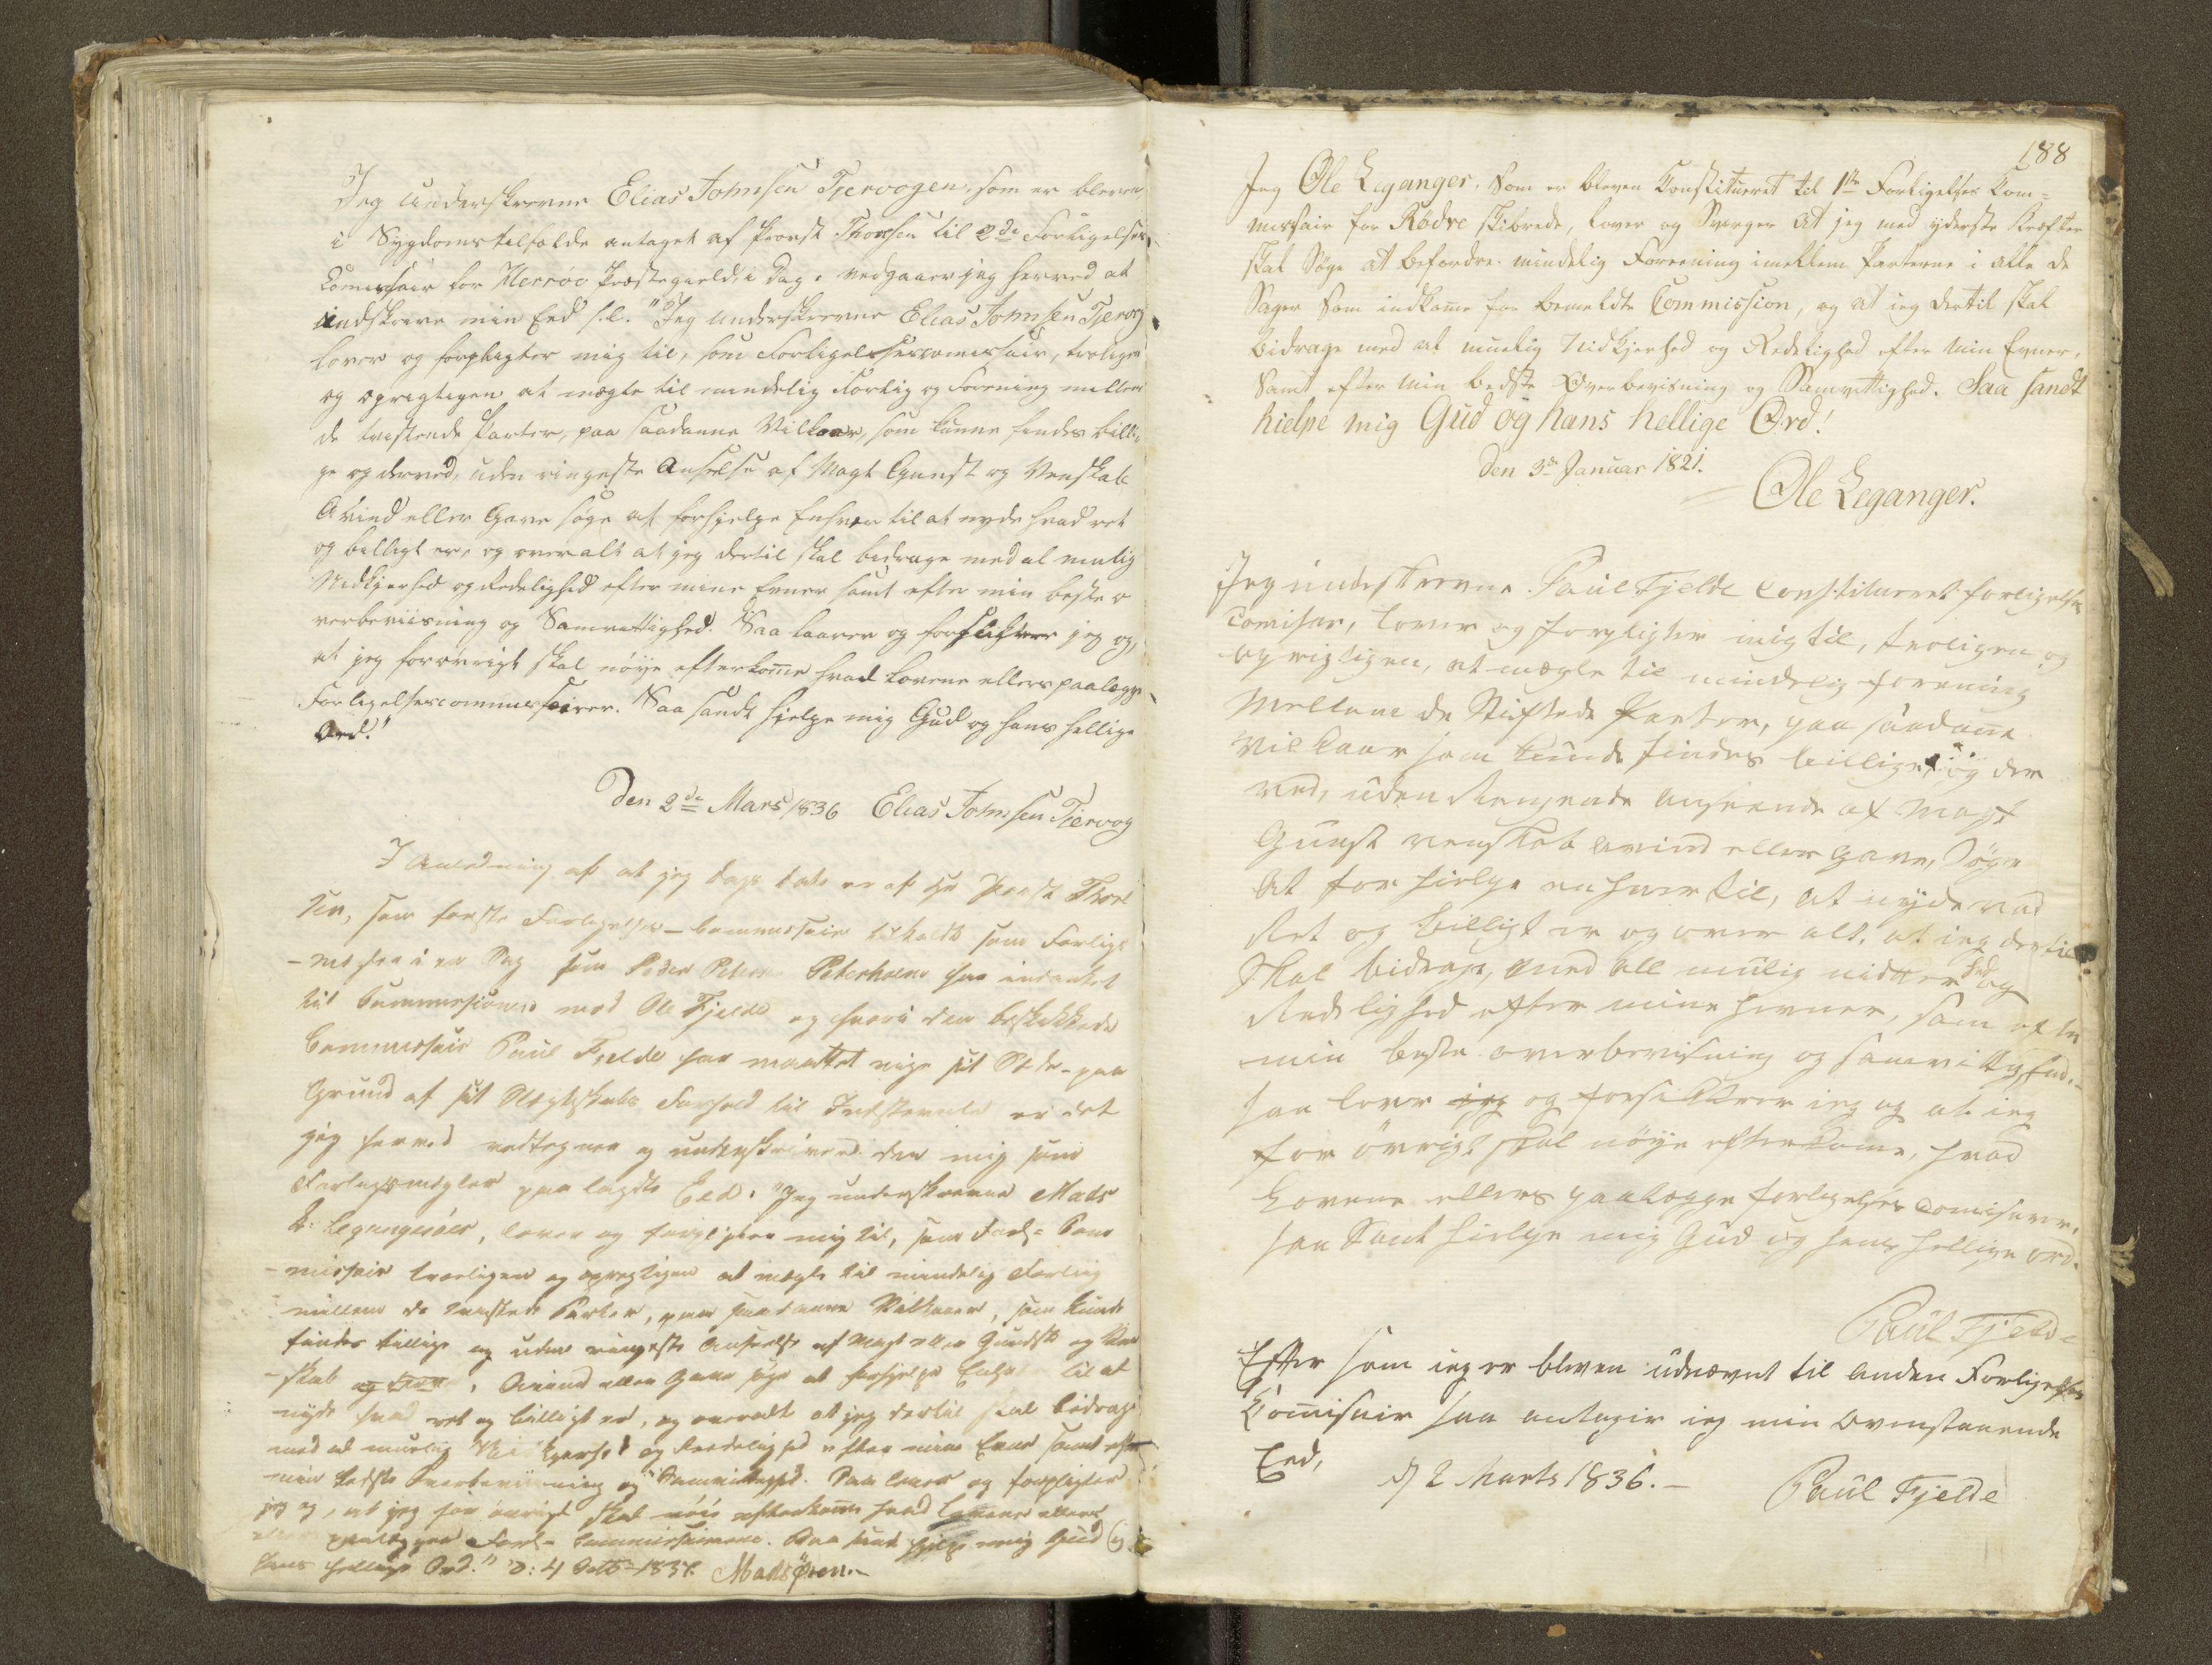 Jeg underskrevne Elias Johnsen Tjervogen, som er bleven
i Sygdomstilfælde antaget af Provst Thoresen til 2de Forligelses
Comissair for Herröe Præstegield, i Dag, vedgaaer jeg herved at
indskrive min Eed s.l. "Jeg underskrevne Elias Johnsen Tjervog
lover og forpligter mig til, som Forligelsescomissair, troligen
og oprigtigen at mægle til mindelig Forlig og Forening mellem
de tvistende Parter, paa saadanne Vilkaar, som kunne findes billi-
ge og derved, uden ringeste Anseelse af Magt Gunst og Venskab
Avind eller Gave söge at forhjelpe Enhver til at nyde hvad ret
og billigt er, og overalt at jeg dertil skal bidrage med al mulig
Nidkjerhed og Redelighed efter mine Evner samt efter min beste o
verbeviisning og Samvittighed. Saa lover og forsikkrer jeg og,
at jeg forövrigt skal nöye efterkomme hvad Lovene ellers paalægge
Forligelsescommissairer. Saa sandt hjelpe mig Gud og hans hellige
Ord!"
Den 2de Mars 1836 Elias Johnsen Tjervog
I Anledning af at jeg Dags Dato er af Hr Provst Thore
sen, som förste Forligelses-Commissair tilkaldt som Forligs
- i en Sag som Peder Peterholm har indanket
til Commissionen mod Ole Fjelde og hvori den beskikkede
Commissair Paul Fjelde har maattet vige sit Sæde paa
Grund af sit Slægtskabs Forhold til Indstevnte er det
jeg herved vedtegner og underskriver den mig som
Forligsmægler paalagte Eed: "Jeg underskrevne Mads
Leganger, lover og forpligter mig til, som Forl= Com
-missair troeligen og oprigtigen at mægle til mindelig Forlig
mellem de tvistende Parter, paa saadanne Vilkaar, som kunde
findes billige og uden ringeste Anseelse af Magt eller Gundst og Ven
-skab, Avind eller Gave söge at forhjelpe Enhver til at
nyde hvad ret og billigt er, og overalt at jeg dertil skal bidrage
med al muelig Nidkjerhed og Reedelighed efter mine Evner samt efter
min bedste Overbeviisning og Samvittighed. Saa lover og forpligter
jeg og, at jeg for övrigt skal nöie efterkomme hvad Lovene ellers
paalægger Forl- Commissairerne. Saa sandt hjelpe mig Gud og
hans hellige Ord." D: 4 Octb= 1837. Mads Ören.-
188
Jeg Ole Leganger, Som er bleven Constitueret til 1ste Forligelses Com=
missair for Rødve Skibrede, lover og Sverger At jeg med yderste Kræfter
skal Söge at befordre mindelig Foreening imellem Parterne i alle de
Sager Som indkomme for bemeldte Commission, og at ieg dertil skal
bidrage med al muelig Nidkjerhed og Redelighed efter Min Evner,
Samt efter Min bedste Overbeviisning og Samvittighed. Saa sandt
hielpe mig Gud og hans hellige Ord!
Den 3de Januar 1821.
Ole Leganger.
Jeg underskrevne Paul Fjelde Constitueret forligelses
Comisær, lover og forpligter mig til, troligen og
oprigtigen, at mægle til mindelig forening
Mellem de Stiftede Parter, paa saadane
Vilkaar som kunde findes billige, og der
ved, uden Ringeste Anseende af Magt
Gunst venskab avind eller gave, Söge
At forhielpe enhver til, at nyde vad
Ret og billigt er og over alt, at ieg dertil
Skal bidrage, med all mulig nidkerhed og
Redelighed efter mine hevner, samt efter
min beste overbevisning og samvittighed.-
saa lover og forsikkrer ieg og at ieg
for övrigt skal nöye efterkome, hvad
Lovene ellers paalegge forligelses Comisærer,
saa Sant hielpe mig Gud og hans hellige ord.
Paul Fjelde
Efter som ieg er bleven udnævnt til Anden Forligelses
Komisair saa antagir ieg min ovenstaaende
Eed,
d 2 Marts 1836.- Paul Fjelde